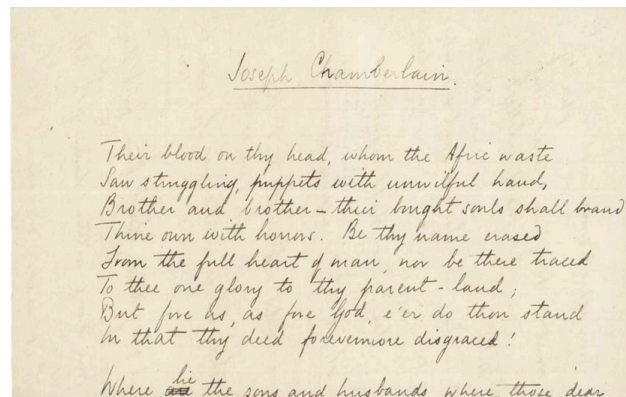 Joseph Chamberlain.
Their blood on thy head, whom the Afric waste
Saw struggling, puppets with unwilful hand,
Brother and brother – their bought souls shall brand
Thine own with horrors. Be thy name erased
From the full heart of man, nor be there traced
To thee one glory to thy parent-land;
But fore us, as fore God, e'er do thou stand
In that thy deed forevermore disgraced!
Where lie the sons and husbands, where those dear